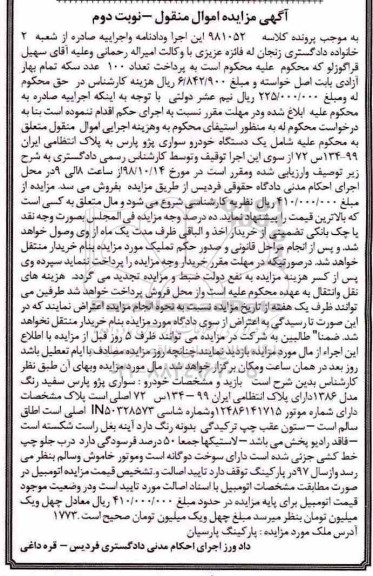 آگهی مزایده اموال منقول – نوبت دوم
به موجب پرونده کلاسه 981052 این اجرا ودادنامه واجراییه صادره از شعبه 2
خانواده دادگستری زنجان له فائزه عزیزی با وکالت امیراله رحمانی وعلیه آقای سهیل
قراگوزلو که محکوم علیه محکوم است به پرداخت تعداد 100 عدد سکه تمام بهار
آزادی بابت اصل خواسته و مبلغ 6/842/900 ریال هزینه کارشناس در حق محکوم
له ومبلغ 225/000/000 ریال نیم عشر دولتی با توجه به اینکه اجراییه صادره به
محکوم علیه ابلاغ شده ودر مهلت مقرر نسبت به اجرای حکم اقدام ننموده است بنا به
درخواست محکوم له به منظور استیفای محکوم به وهزینه اجرایی اموال منقول متعلق
به محکوم علیه شامل یک دستگاه خودرو سواری پژو پارس به پلاک انتظامی ایران
99-134س 72 از سوی این اجرا توقیف وتوسط کارشناس رسمی دادگستری به شرح
زیر توصیف وارزیابی شده ومقرر است در مورخ 98/10/14از ساعت 8الی 9در محل
اجرای احکام مدنی دادگاه حقوقی فردیس از طریق مزایده بفروش می رسد. مزایده از
مبلغ 410/000/000 ریال نظریه کارشناسی شروع می شود و مال متعلق به کسی است
که بالاترین قیمت را پیشنهاد نماید. ده درصد وجه مزایده فی المجلس بصورت وجه نقد
یا چک بانکی تضمینی از خریدار اخذ و الباقی ظرف مدت یک ماه از وی وصول خواهد
شد. و پس از انجام مراحل قانونی و صدور حکم تملیک مورد مزایده بنام خریدار منتقل
خواهد شد. درصورتیکه در مهلت مقرر خریدار وجه مزایده را پرداخت ننماید سپرده وی
پس از کسر هزینه مزایده به نفع دولت ضبط و مزایده تجدید می گردد. هزینه های
نقل وانتقال به عهده محکوم علیه است واز محل فروش پرداخت خواهد شد طرفین می
توانند ظرف یک هفته از تاریخ مزایده نسبت به نحوه انجام مزایده اعتراض نمایند که در
این صورت تا رسیدگی به اعتراض از سوی دادگاه مورد مزایده بنام خریدار منتقل نخواهد
شد. ضمنا" طالبین به شرکت در مزایده می توانند ظرف 5 روز قبل از مزایده با اطلاع
این اجراء از مال مورد مزایده بازدید نمایند چنانچه روز مزایده مصادف با ایام تعطیل باشد
روز بعد در همان ساعت ومکان برگزار خواهد شد. مال مورد مزایده وبهای آن طبق نظر
کارشناس بدین شرح است بازید و مشخصات خودرو : سواری پژو پارس سفید رنگ
مدل 1386دارای پلاک انتظامی ایران 99 – 134س 72 اصلی است پلاک مشخصات
دارای شماره موتور 12486141715وشماره شاسی IN50328573 اصلی است اطاق
سالم است – ستون عقب چپ ترکیدگی بدونه رنگ دارد آینه بغل راست شکسته است
– فاقد رادیو پخش می باشد – لاستیکها جمعا 50 درصد فرسودگی دارد درب جلو چپ
خط کشی جزئی شده است دارای سوخت دوگانه است وموتور خاموش وسالم بنظر می
رسد وازسال 97در پارکینگ توقف دارد تایید اصالت و تشخیص قیمت مزایده اتومبیل در
صورت مطابقت مشخصات اتومبیل با اسناد اصالت مورد تایید است ودر وضعیت موجود
قیمت اتومبیل برای پایه مزایده در حدود مبلغ 410/000/000 ریال معادل چهل ویک
میلیون تومان بنظر میرسد مبلغ چهل ویک میلیون تومان صحیح است.1773
آدرس ملک مورد مزایده : پارکینگ پارسیان
داد ورز اجرای احکام مدنی دادگستری فردیس – قره داغی